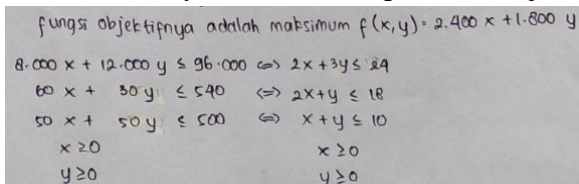 fungsi objektifnya adalah maksimum f(x,y) = 2.400 x + 1.800 y
8.000 x + 12.000 y ≤ 96.000 <=> 2x + 3y ≤ 24
60 x + 30 y ≤ 540 <=> 2x + y ≤ 18
50 x + 50 y ≤ 500 <=> x + y ≤ 10
x ≥ 0 x ≥ 0
y ≥ 0 y ≥ 0